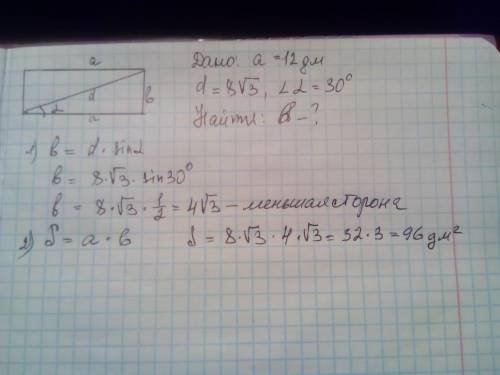 a
d
в
α
a
Дано: a = 12 дм
d = 8√3, ∠α = 30°
Найти: в - ?
1) в = d · sinα
в = 8·√3 · sin30°
в = 8·√3 · 1/2 = 4√3 - меньшая сторона
2) S = a · в S = 8·√3 · 4·√3 = 32·3 = 96 дм²